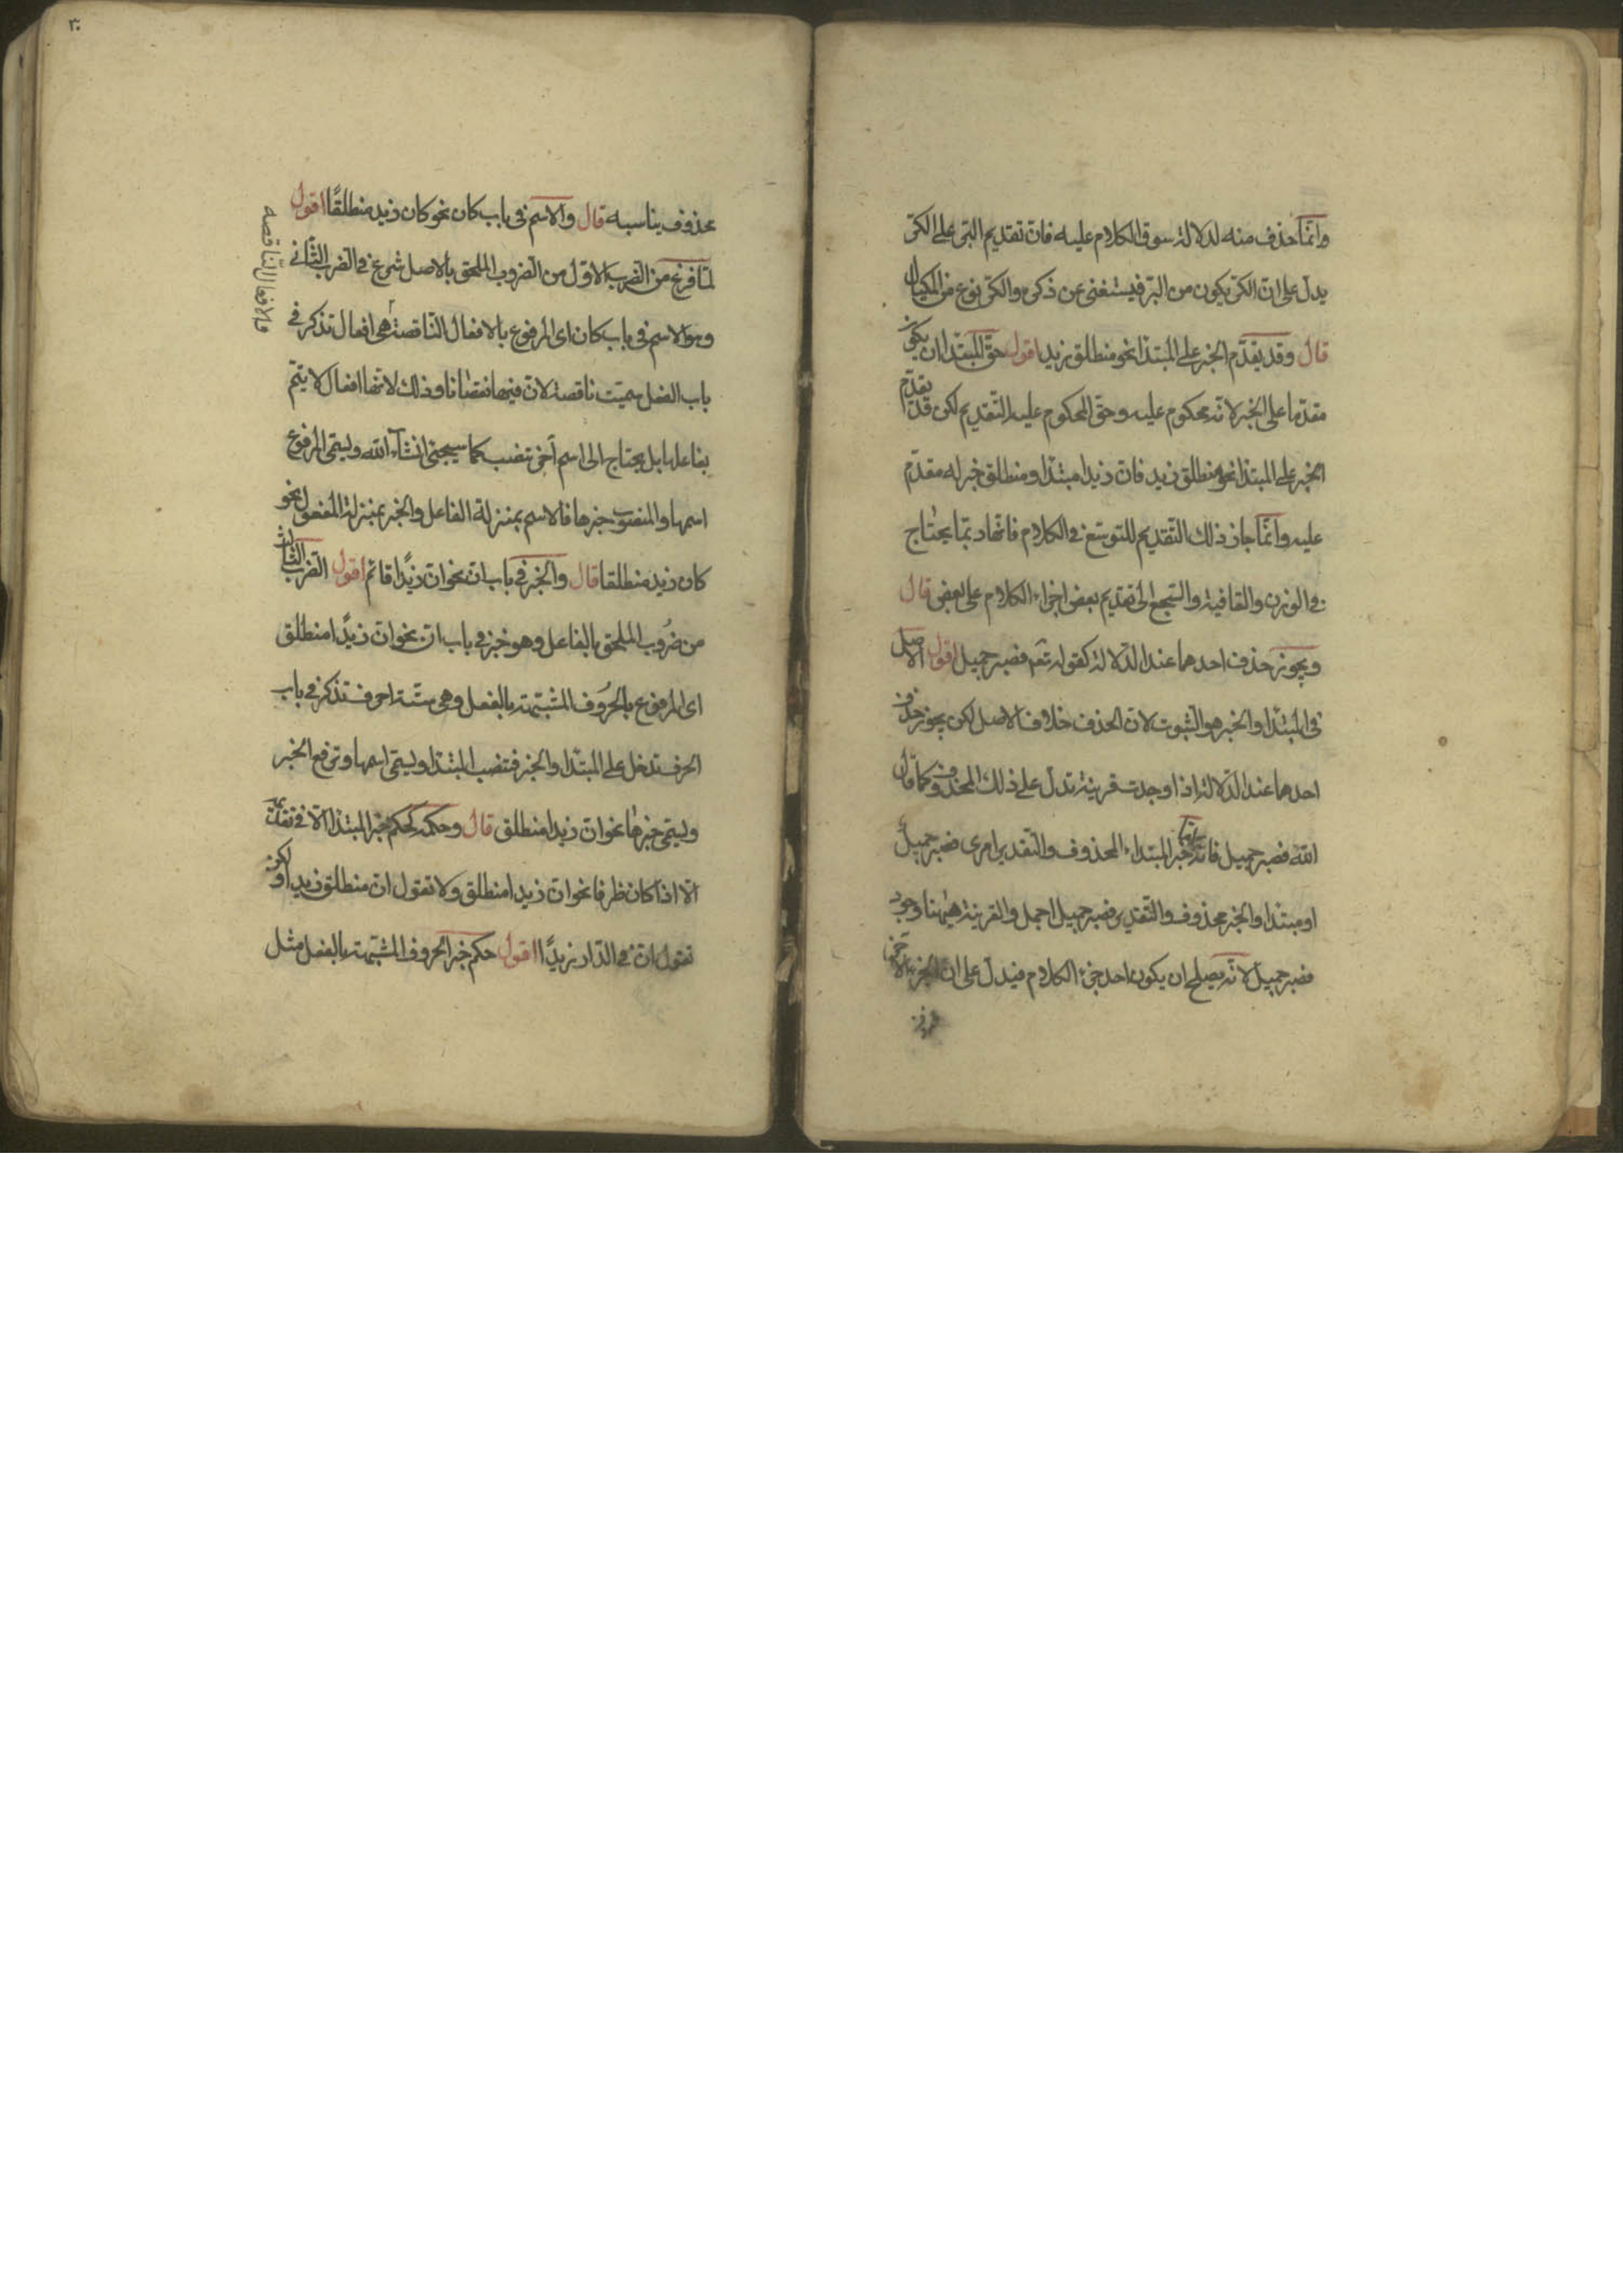 وانما حذف منه لدلالة سوق الكلام عليه فان تقديم البر على الكر
يدل على ان الكر يكون من البر فيستغنى عن ذكره والكر نوع من المكيال
قال وقد يقدم الخبر على المبتدأ نحو منطلق زيد اقول حق المبتدا ان يكون
مقدما على الخبر لانه محكوم عليه وحق المحكوم عليه التقديم لكن قد يقدم
الخبر على المبتدا نحو منطلق زيد فان زيدا مبتدا ومنطلق خبر له مقدم
عليه وانما جاز ذلك التقديم للتوسع في الكلام فانها دبما يحتاج
في الوزن والقافية والسجع الى تقديم بعض اجزاء الكلام على بعض قال
ويجوز حذف احدهما عند الدلالة كقوله تع فصبر جميل اقول الاصل
في المبتدا والخبر هو الثبوت لان الحذف خلاف الاصل لكن يجوز حذف
احدهما عند الدلالة اذا وجدت قرينة تدل على ذلك المحذوف كما قال
الله فصبر جميل فانه اما خبر المبتداء المحذوف والتقدير امرى فصبر جميل
او مبتدا والخبر محذوف والتقدير فصبر جميل اجمل والقرينة ههنا وجود
فصبر جميل لانه يصلح ان يكون احد جزء الكلام فيدل على ان الجزء الآخر
محذوف
٣٠
محذوف يناسبه قال والاسم في باب كان نحو كان زيد منطلقًا اقول
لما فرغ من الضرب الاول من الضروب الملحق بالاصل شرع في الضرب الثانى
وهو الاسم في باب كان اى المرفوع بالافعال الناقصة هى افعال تذكر في
باب الفعل سميت ناقصة لان فيها نقصانا وذلك لانها افعال لا يتم
بفاعلها بل يحتاج الى اسم آخر تنصب كما سيجئ انشاء الله ويسمى المرفوع
اسمها والمنصوب خبرها فالاسم بمنزلة الفاعل والخبر بمنزلة المفعول نحو
كان زيد منطلقا قال والخبر في باب ان نحو ان زيدًا قائم اقول الضرب الثالث
من ضروب الملحق بالفاعل وهو خبر في باب ان نحو ان زيدًا منطلق
اى المرفوع بالحروف المشبهة بالفعل وهى ستة احرف تذكر في باب
الحرف تدخل على المبتدا والخبر فتنصب المبتدا ويسمى اسمها وترفع الخبر
ويسمى خبرها نحو ان زيدا منطلق قال وحكمه كحكم خبر المبتدا الا في تقديمه
الا اذا كان ظرفا نحو ان زيدا منطلق ولا تقول ان منطلق زيدا ولكن
تقول ان في الدار زيدًا اقول حكم خبر الحروف المشبهة بالفعل مثل
الافعال الناقصه